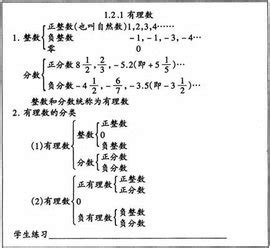 1.2.1有理数
正整数(也叫自然数)1,2,3,4……
1. 整数 负整数 -1,-1,-3,-4…
零 0
分数 正分数 8 1/2, 2/3, -5.2(即+5 1/5)…
负分数 -4 1/2, -6/7, -3.5(即-3 1/2)…
整数和分数统称为有理数
2. 有理数的分类
(1)有理数 整数 正整数
0
负整数
分数 正分数
负分数
(2)有理数 正有理数 正整数
正分数
0
负有理数 负整数
负分数
学生练习